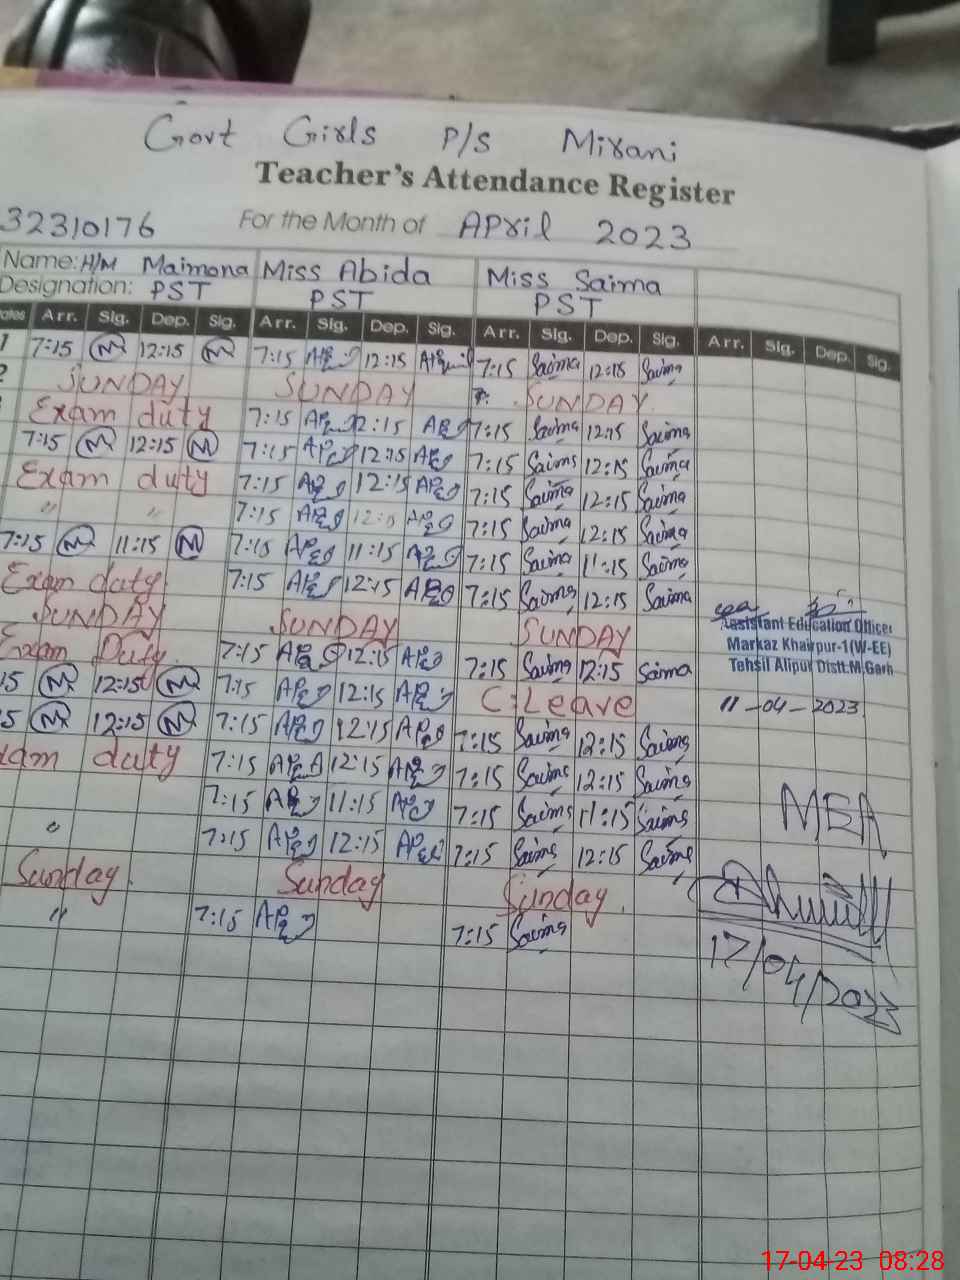 Govt Girls P/S Mirani
Teacher's Attendance Register
32310176 For the Month of APril 2023
Name: H/M Maimona Miss Abida Miss Saima
Designation: PST PST PST
Arr. Sig. Dep. Sig. Arr. Sig. Dep. Sig. Arr. Sig. Dep. Sig. Arr. Sig. Dep. Sig.
1 7:15 M 12:15 M 7:15 12:15 7:15 Saima 12:15 Saima
2 SUNDAY SUNDAY SUNDAY
Exam duty 7:15 12:15 7:15 Saima 12:15 Saima
7:15 M 12:15 M 7:15 12:15 7:15 Saima 12:15 Saima
Exam duty 7:15 12:15 7:15 Saima 12:15 Saima
" " 7:15 12:15 7:15 Saima 12:15 Saima
7:15 M 11:15 M 7:15 11:15 7:15 Saima 11:15 Saima
Exam duty 7:15 12:15 7:15 Saima 12:15 Saima
SUNDAY SUNDAY SUNDAY
Exam Duty 7:15 12:15 7:15 Saima 12:15 Saima
15 M 12:15 M 7:15 12:15 C:Leave
15 M 12:15 M 7:15 12:15 7:15 Saima 12:15 Saima
xam duty 7:15 12:15 7:15 Saima 12:15 Saima
7:15 11:15 7:15 Saima 11:15 Saima
" 7:15 12:15 7:15 Saima 12:15 Saima
Sunday Sunday Sunday
" 7:15 7:15 Saima
Assistant Education Officer
Markaz Khairpur-1(W-EE)
Tehsil Alipur Distt:M.Garh
11-04-2023
MEA
17/04/2023
17-04-23 08:28